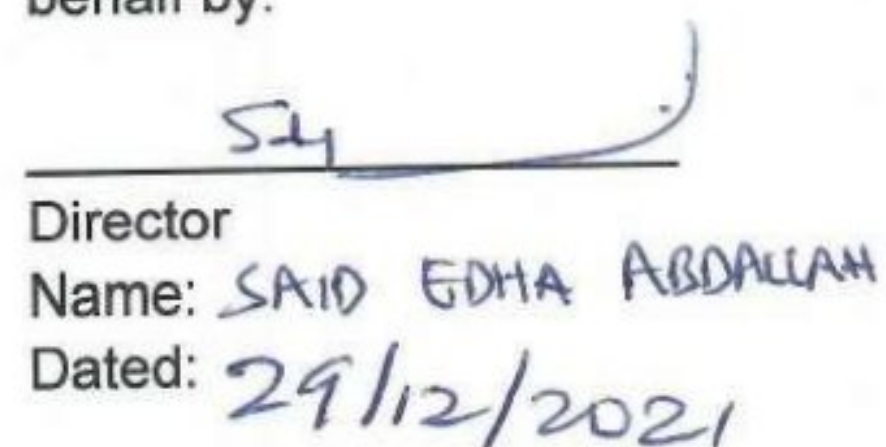 behalf by:
Director
Name: SAID EDHA ABDALLAH
Dated: 29/12/2021